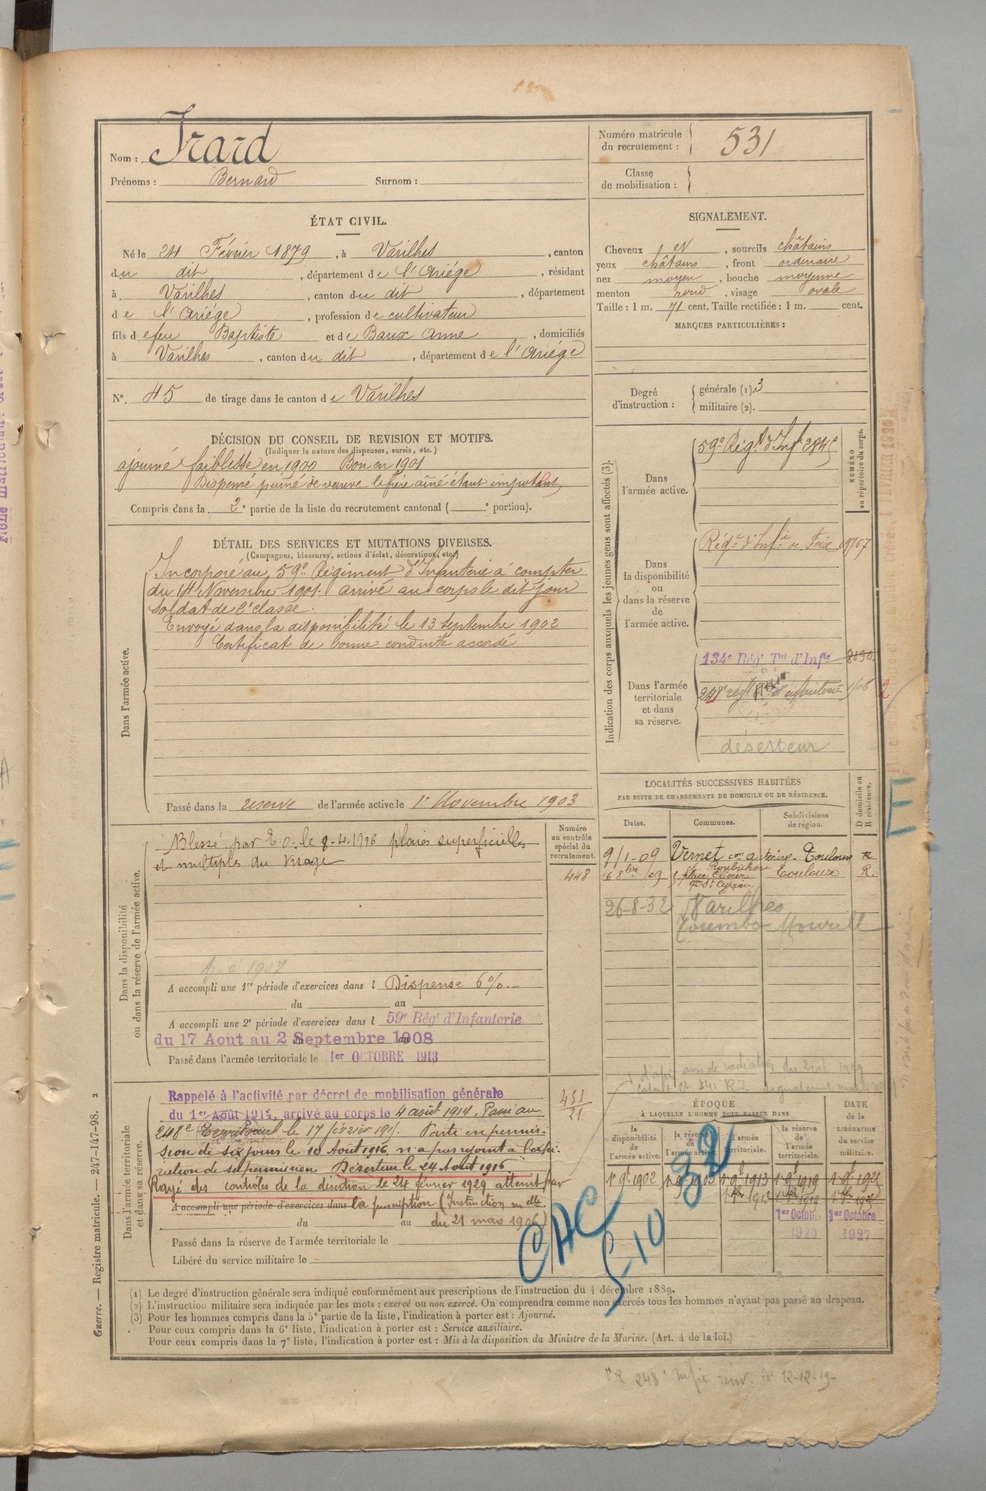 Nom : Irard
Prénoms : Bernard Surnom :
Numéro matricule du recrutement : 531
Classe de mobilisation :
ÉTAT CIVIL.
Né le 24 Février 1879, à Varilhes, canton
du dit, département de l'Ariége, résidant
à Varilhes, canton du dit, département
de l'Ariége, profession de cultivateur
fils de feu Baptiste et de Baux Anne, domiciliés
à Varilhes, canton du dit, département de l'Ariége
N°. 45 de tirage dans le canton de Varilhes
SIGNALEMENT.
Cheveux et, sourcils châtains
yeux châtains, front ordinaire
nez moyen, bouche moyenne
menton rond, visage ovale
Taille : 1 m. 71 cent. Taille rectifiée : 1 m. cent.
MARQUES PARTICULIÈRES :
Degré d'instruction : générale (1). 3
militaire (2).
DÉCISION DU CONSEIL DE REVISION ET MOTIFS.
(Indiquer la nature des dispenses, sursis, etc.)
ajourné faiblesse en 1900 Bon en 1901
Dispensé puiné de veuve le frère aîné étant impotent
Compris dans la 2e partie de la liste du recrutement cantonal ( e portion).
DÉTAIL DES SERVICES ET MUTATIONS DIVERSES.
(Campagnes, blessures, actions d'éclat, décorations, etc.)
Dans l'armée active.
Incorporé au 59e Régiment d'Infanterie à compter
du 14 Novembre 1901. arrivé au corps le dit jour
soldat de 2e classe.
Envoyé dans la disponibilité le 13 septembre 1902
Certificat de bonne conduite accordé
Passé dans la réserve de l'armée active le 1er Novembre 1903
Indication des corps auxquels les jeunes gens sont affectés (3).
NUMÉRO au répertoire du corps.
Dans l'armée active.
59e Régt d'Infie
Dans la disponibilité ou dans la réserve de l'armée active.
Régt d'Infie de Foix
Dans l'armée territoriale et dans sa réserve.
134e Rég Tal d'Infie
248e régt d'infanterie
déserteur
LOCALITÉS SUCCESSIVES HABITÉES
PAR SUITE DE CHANGEMENTS DE DOMICILE OU DE RÉSIDENCE.
Dates. Communes. Subdivisions de région. D domicile ou R résidence.
9/1-09 Vernet Toulouse R
Toulouse R.
26-8-32 Varilhes
Dans la disponibilité ou dans la réserve de l'armée active.
Numéro au contrôle spécial du recrutement.
448
Blessé par E.O. le 8-4-1916 plaies superficielles
et multiples du visage
A accompli une 1re période d'exercices dans l Dispensé 6%
du au
A accompli une 2e période d'exercices dans l 59e Rég d'Infanterie
du 17 Aout au 2 Septembre 1908
Passé dans l'armée territoriale le 1er OCTOBRE 1913
Dans l'armée territoriale et dans sa réserve.
451
21
Rappelé à l'activité par décret de mobilisation générale
du 1er Août 1914, arrivé au corps le 4 août 1914. Passé au
248e le 17 février 1915. Parti en permis-
sion de six jours le 10 Août 1916, n'a pas rejoint à l'expi-
ration de sa permission Déserteur le 24 Août 1916
Rayé des contrôles de la désertion le 24 février 1929 atteint par
A accompli une période d'exercices dans la prescription (Instruction mlle
du au du 21 mars 1906)
Passé dans la réserve de l'armée territoriale le
Libéré du service militaire le
ÉPOQUE
À LAQUELLE L'HOMME DOIT PASSER DANS
DATE de la LIBÉRATION du service militaire.
la disponibilité de l'armée active. la réserve de l'armée active. l'armée territoriale. la réserve de l'armée territoriale.
1er Octobre 1er Octobre
1927
CAC
5-10 32
(1) Le degré d'instruction générale sera indiqué conformément aux prescriptions de l'instruction du 4 décembre 1889.
(2) L'instruction militaire sera indiquée par les mots : exercé ou non exercé. On comprendra comme non exercés tous les hommes n'ayant pas passé au drapeau.
(3) Pour les hommes compris dans la 5e partie de la liste, l'indication à porter est : Ajourné.
Pour ceux compris dans la 6e liste, l'indication à porter est : Service auxiliaire.
Pour ceux compris dans la 7e liste, l'indication à porter est : Mis à la disposition du Ministre de la Marine. (Art. 4 de la loi.)
Guerre. — Registre matricule. — 247-147-98. 2